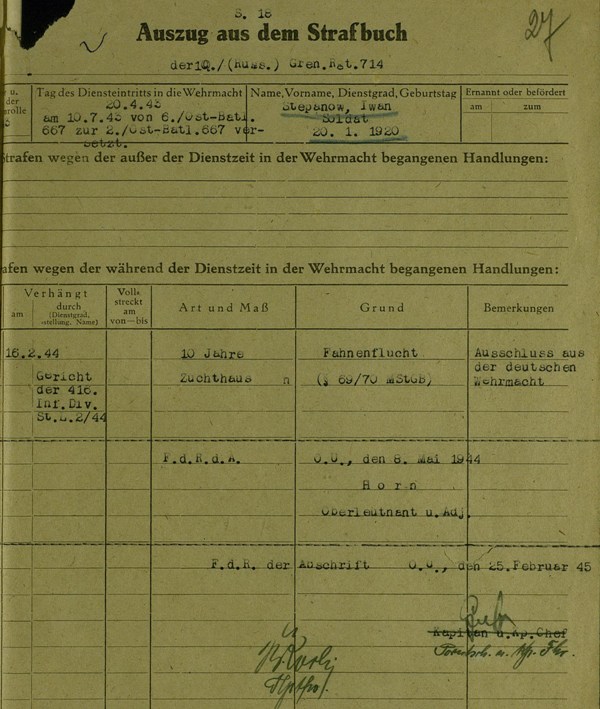 S. 18
27
Auszug aus dem Strafbuch
der 10./(Russ.) Gren.Rgt.714
u.
der
rolle
Tag des Diensteintritts in die Wehrmacht
20.4.43
am 10.7.43 von 6./Ost-Batl.
667 zur 2./Ost-Batl.667 ver-
setzt.
Name, Vorname, Dienstgrad, Geburtstag
Stepanow, Iwan
Soldat
20. 1. 1920
Ernannt oder befördert
am zum
Strafen wegen der außer der Dienstzeit in der Wehrmacht begangenen Handlungen:
afen wegen der während der Dienstzeit in der Wehrmacht begangenen Handlungen:
Verhängt
am
durch
(Dienstgrad,
stellung, Name)
Voll-
streckt
am
von—bis
Art und Maß
Grund
Bemerkungen
16.2.44
Gericht
der 416.
Inf.Div.
St.L.2/44
10 Jahre
Zuchthaus n
Fahnenflucht
(§ 69/70 MStGB)
Ausschluss aus
der deutschen
Wehrmacht
F.d.R.d.A.
O.U., den 8. Mai 1944
Horn
Oberleutnant u. Adj.
F.d.R. der Abschrift O.U., den 25.Februar 45
Kapitän u.Kp.Chef